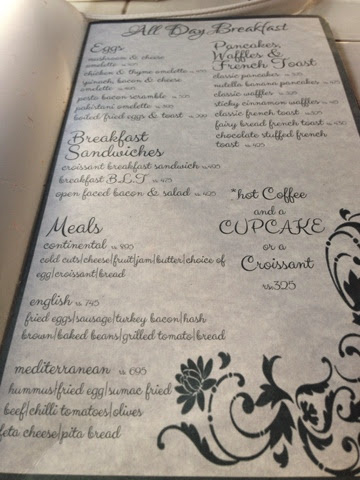 All Day Breakfast
Eggs
mushroom & cheese
omelette
chicken & thyme omelette
spinach, bacon & cheese
omelette
pesto bacon scramble
pakistani omelette
boiled fried eggs & toast
Breakfast
Sandwiches
croissant breakfast sandwich
breakfast B.L.T rs 425
open faced bacon & salad rs 425
Meals
continental rs 825
cold cuts|cheese|fruit|jam|butter|choice of
egg|croissant|bread
english rs 745
fried eggs|sausage|turkey bacon|hash
brown|baked beans|grilled tomato|bread
mediterranean rs 695
hummus|fried egg|sumac fried
beef|chilli tomatoes|olives
feta cheese|pita bread
Pancakes,
Waffles &
French Toast
classic pancakes
nutella banana pancakes
classic waffles
sticky cinnamon waffles
classic french toast
fairy bread french toast
chocolate stuffed french
toast
*hot Coffee
and a
CUPCAKE
or a
Croissant
rs.325